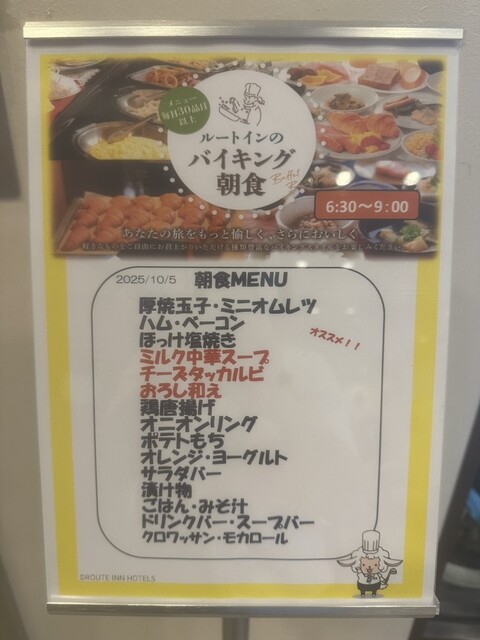 メニュー
毎日30品目
以上
ルートインの
バイキング
朝食
Buffet
6:30～9:00
あなたの旅をもっと愉しく、さらにおいしく
2025/10/5 朝食MENU
厚焼玉子・ミニオムレツ
ハム・ベーコン
ほっけ塩焼き
オススメ！！
ミルク中華スープ
チーズタッカルビ
おろし和え
鶏唐揚げ
オニオンリング
ポテトもち
オレンジ・ヨーグルト
サラダバー
漬け物
ごはん・みそ汁
ドリンクバー・スープバー
クロワッサン・モカロール
©ROUTE INN HOTELS